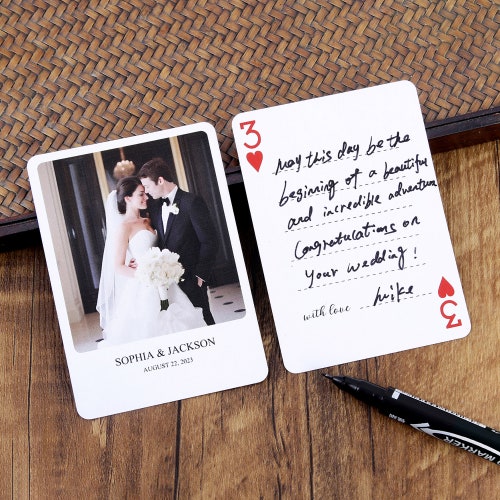 SOPHIA & JACKSON
AUGUST 22, 2023
3
May this day be the
beginning of a beautiful
and incredible adventure
Congratulations on
your wedding!
with love Mike
3
MARKER